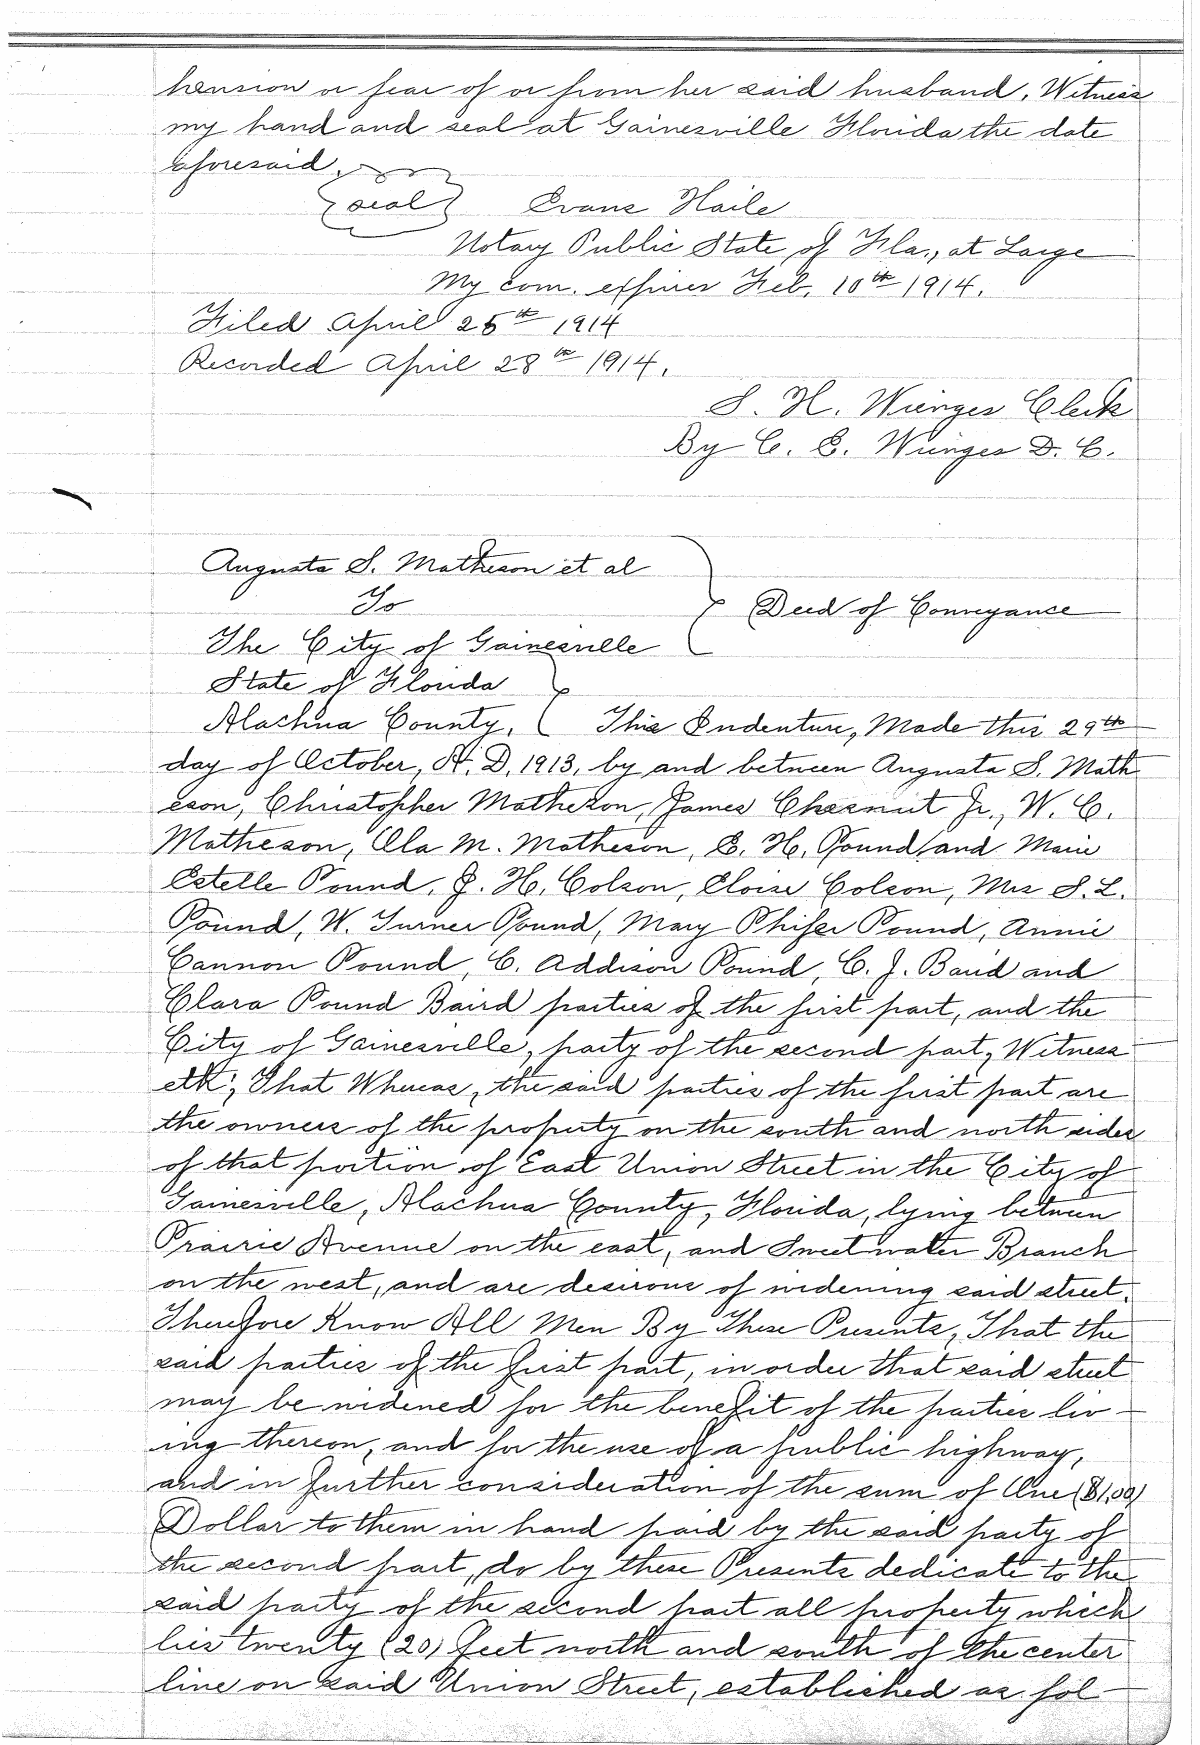 hension or fear of or from her said husband. Witness
my hand and seal at Gainesville Florida the date
aforesaid.
seal Evans Haile
Notary Public State of Fla., at Large
My com. expires Feb. 10th 1914.
Filed April 25th 1914
Recorded April 28th 1914.
S. H. Wienges Clerk
By C. E. Wienges D. C.
Augusta S. Matheson et al
To
Deed of Conveyance
The City of Gainesville
State of Florida
Alachua County. This Indenture, Made this 29th
day of October, A. D. 1913, by and between Augusta S. Math
eson, Christopher Matheson, James Chesnut Jr., W. C.
Matheson, Ola M. Matheson, E. H. Pound and Marie
Estelle Pound, J. H. Colson, Eloise Colson, Mrs S. L.
Pound, W. Turner Pound, Mary Phifer Pound, Annie
Cannon Pound, C. Addison Pound, C. J. Baird and
Clara Pound Baird parties of the first part, and the
City of Gainesville, party of the second part, Witness
eth; That Whereas, the said parties of the first part are
the owners of the property on the south and north sides
of that portion of East Union Street in the City of
Gainesville, Alachua County, Florida, lying between
Prairie Avenue on the east, and Sweetwater Branch
on the west, and are desirous of widening said street.
Therefore Know All Men By These Presents, That the
said parties of the first part, in order that said street
may be widened for the benefit of the parties liv-
ing thereon, and for the use of a public highway,
and in further consideration of the sum of One ($1.00)
Dollar to them in hand paid by the said party of
the second part, do by these Presents dedicate to the
said party of the second part all property which
lies twenty (20) feet north and south of the center
line on said Union Street, established as fol-